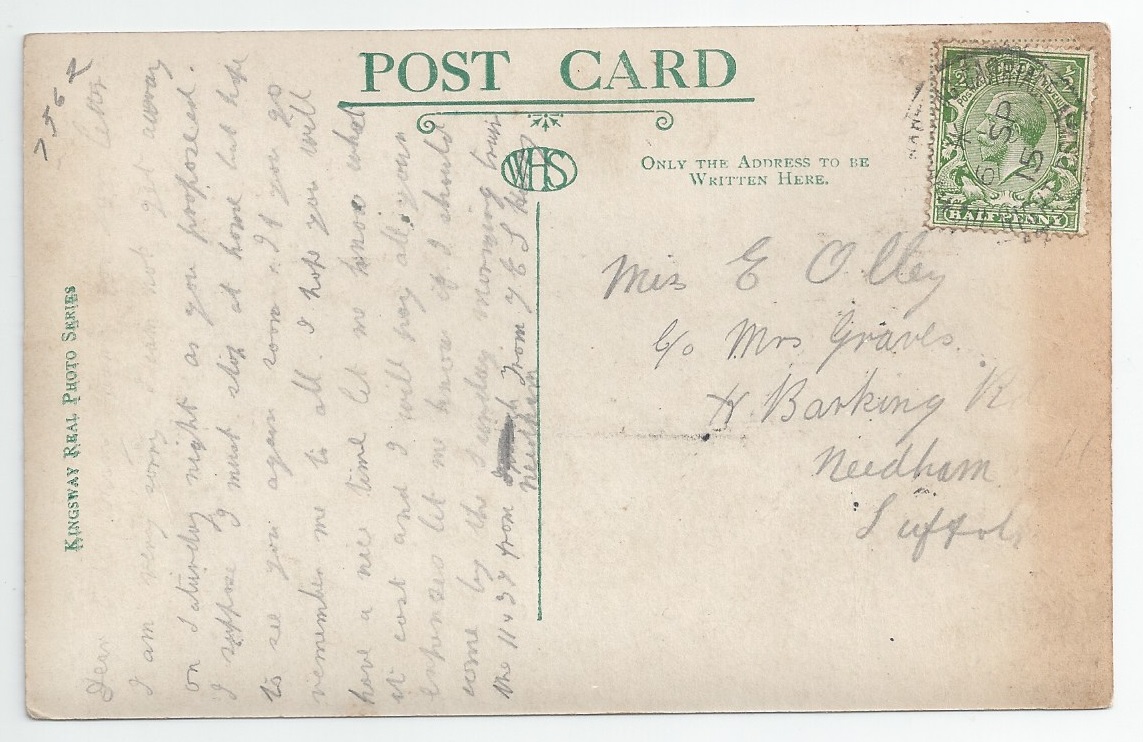 POST CARD
WHS
ONLY THE ADDRESS TO BE
WRITTEN HERE.
HALFPENNY
SP
15
KINGSWAY REAL PHOTO SERIES
7562
Miss E Olley
c/o Mrs Graves
Barking Rd
Needham
Suffolk
Dear
I am very sorry I can not get away
on Saturday night as you proposed.
I suppose I must stop at home but hope
to see you again soon. If you go
remember me to all. I hope you will
have a nice time let me know what
it cost and I will pay all your
expenses let me know if I should
come by the Sunday morning train
the 11 from from
Needham